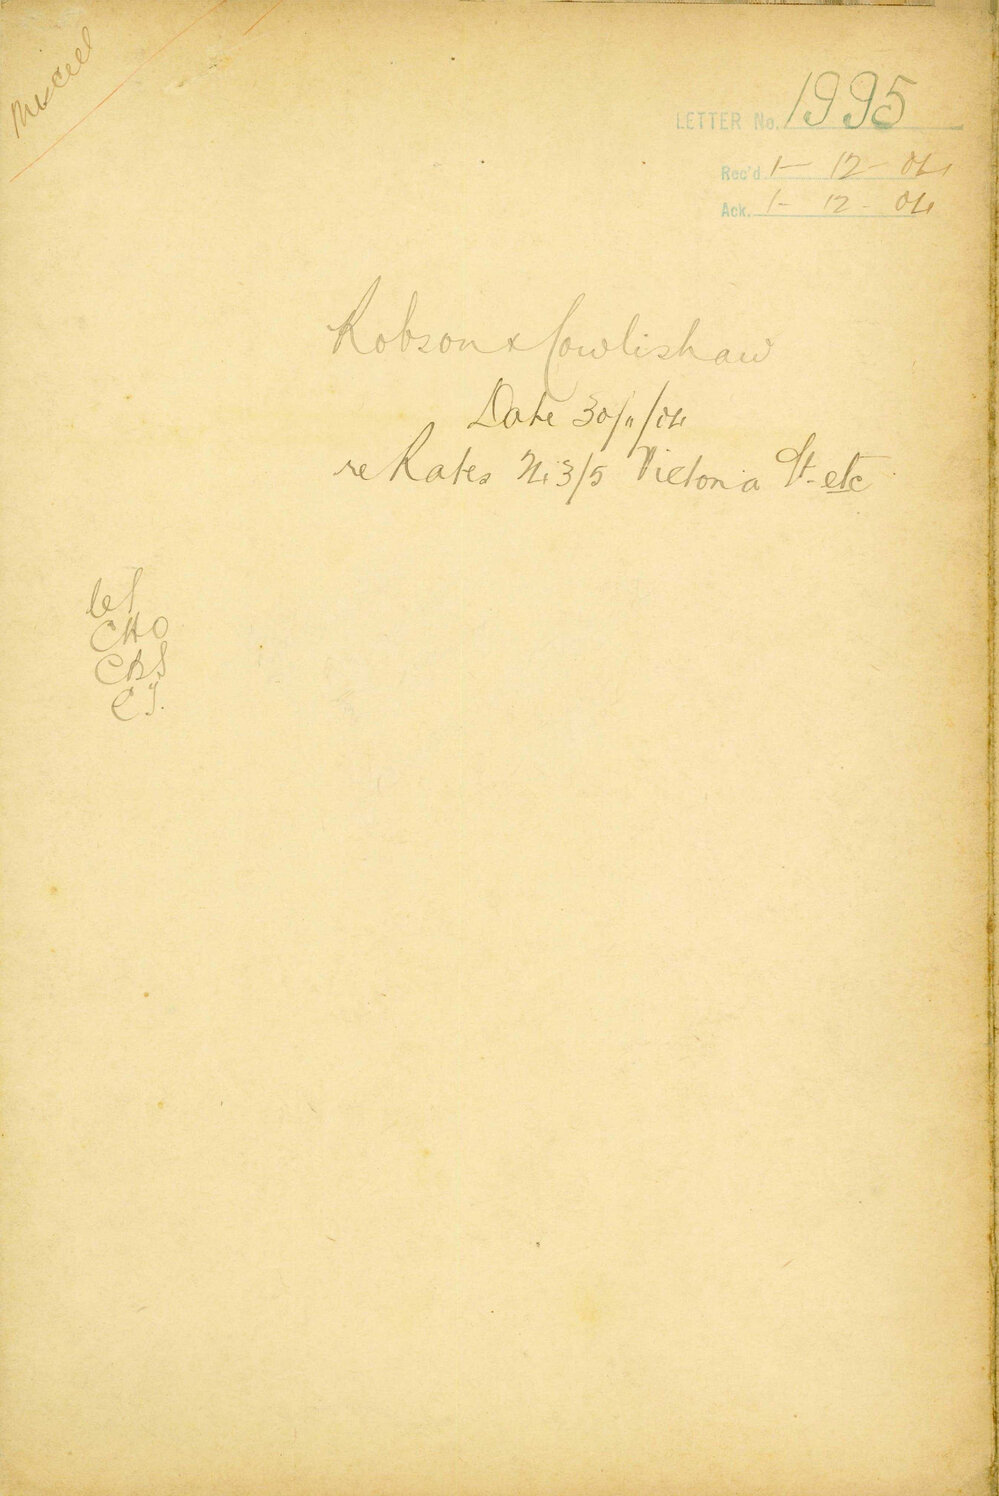 Miscell
LETTER No. 1995
Rec'd. 1- 12- 04
Ack. 1- 12- 04
Robson & Cowlishaw
Date 30/11/04
re Rates No 3/5 Victoria St. etc
CHO